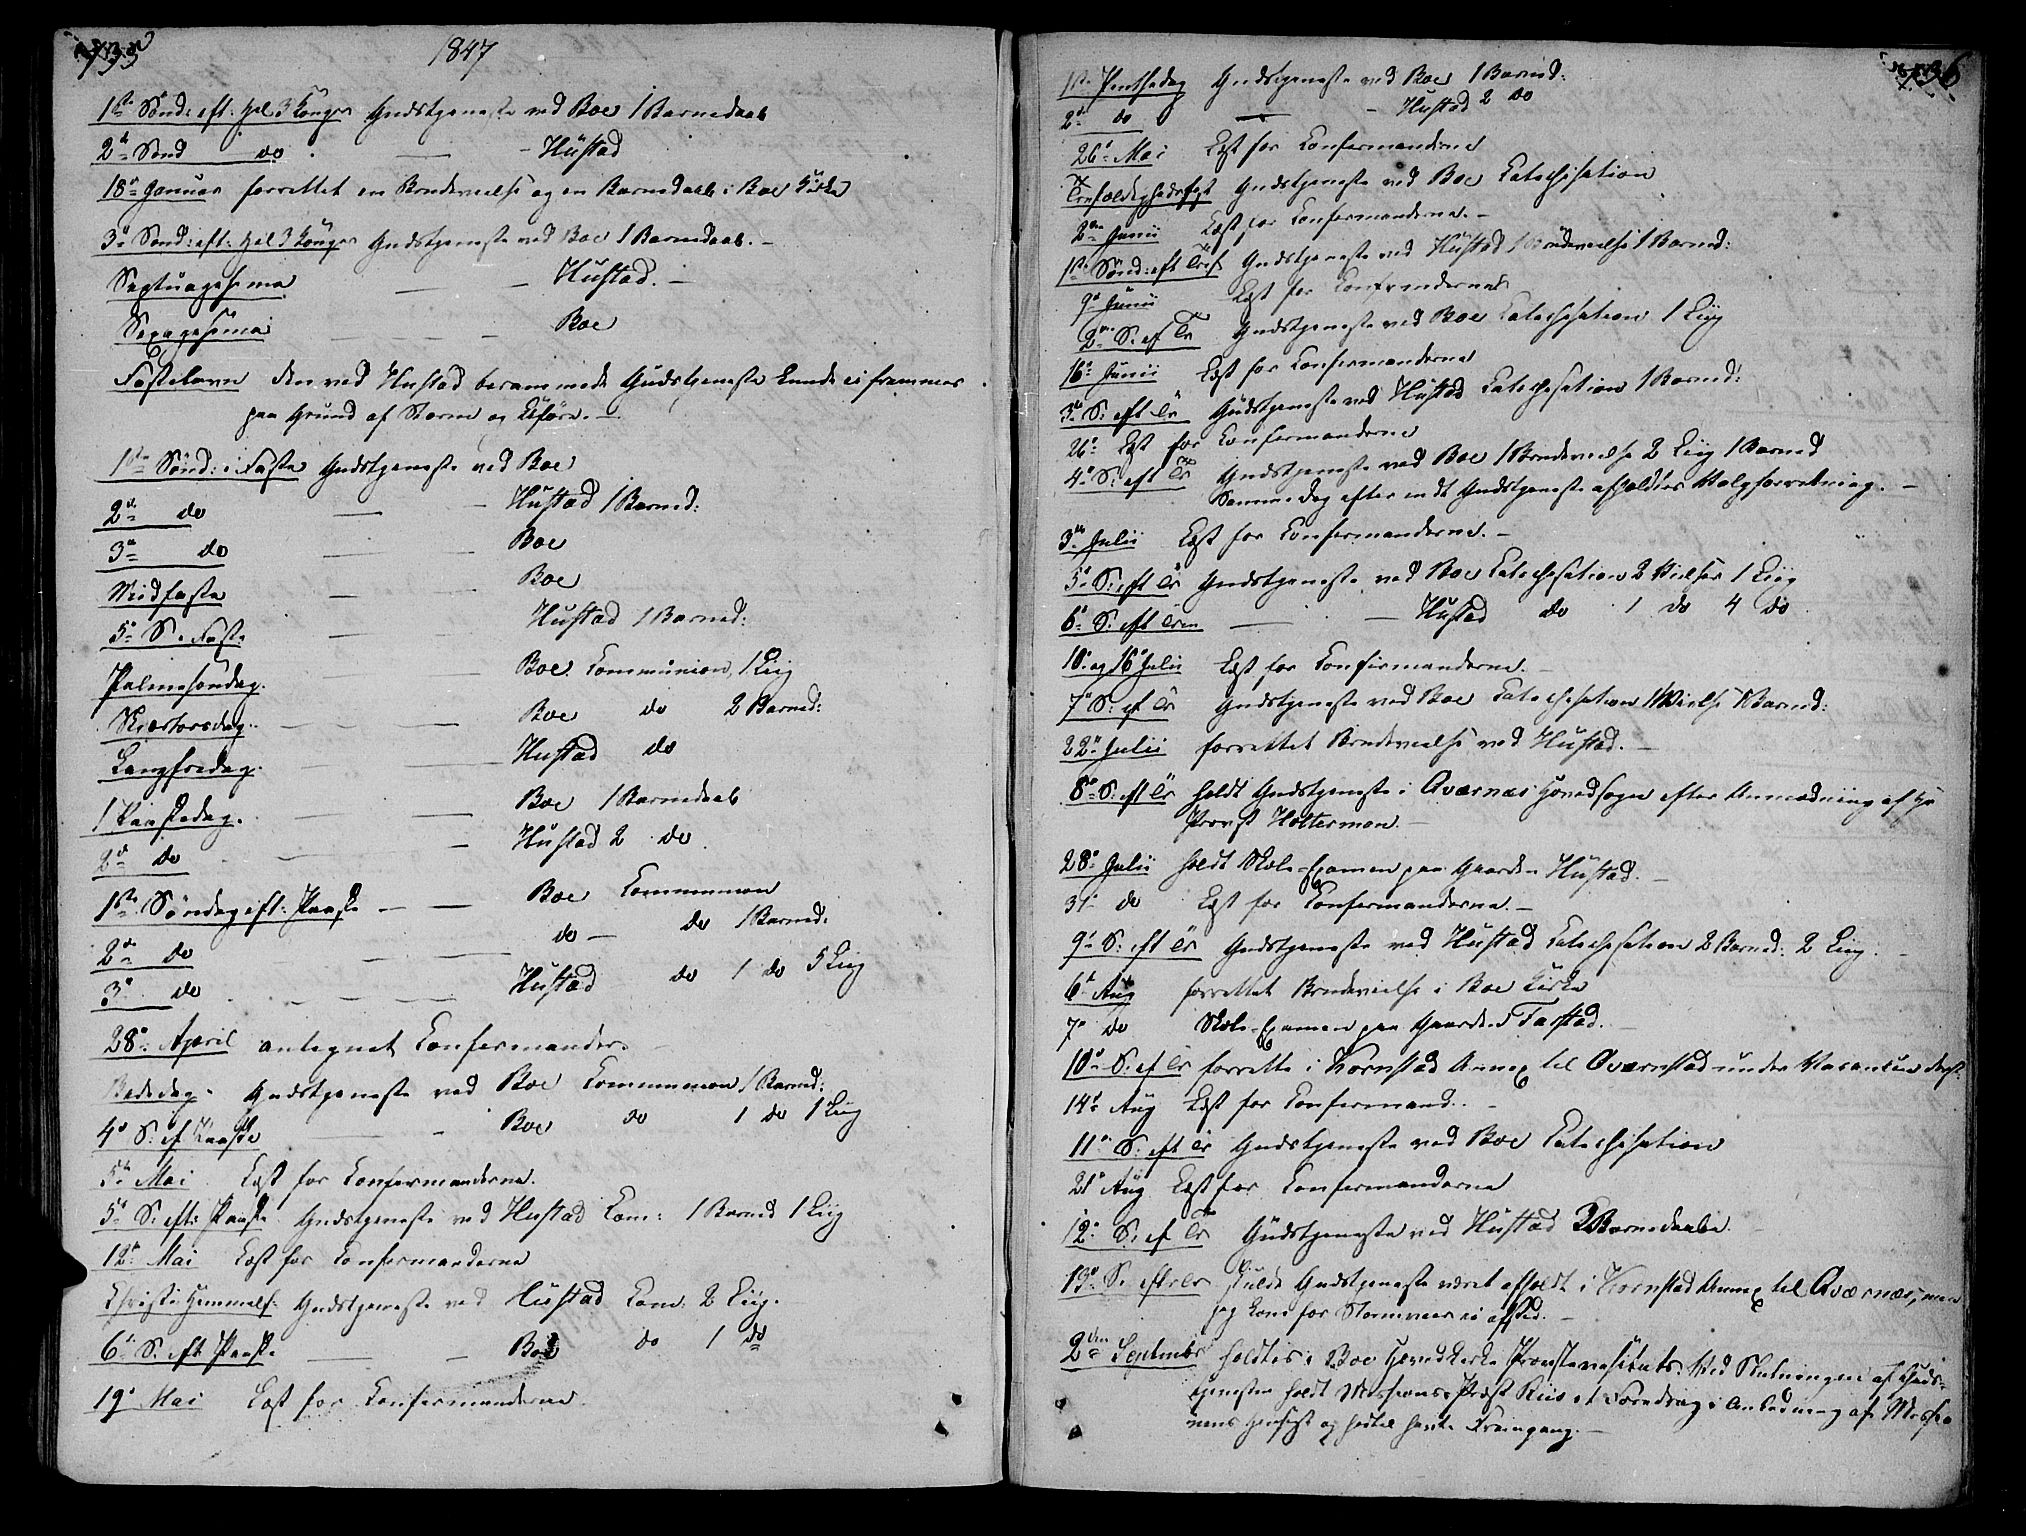 735
1847
1ste Sønd: eft: Hel 3 Konger Gudstjeneste ved Boe 1 Barnedaab
2d Sønd do — - Hustad
18d Januar forrettet en Brudevielse og en Barnedaab i Boe Kirke
3d Sønd: eft: Hel 3 Konger Gudstjeneste ved Boe 1 Barnedaab. -
Septuagesima — - Hustad. -
Sexagesima — - Boe
Fastelavn den ved Hustad berammede Gudstjeneste kunde ei fremmes
paa Grund af Storm og Uføre. -
1ste Sønd: i Faste Gudstjeneste ved Boe
2d do — - Hustad 1 Barned:
3d do — Boe
Midfaste — - Boe
5d S. i Faste — Hustad 1 Barned:
Palmesøndag. — Boe Communion, 1 Liig
Skjærtorsdag. — Boe do 2 Barned:
Langfredag. — Hustad do
1 Paaskedag. — Boe 1 Barnedaab
2d do — - Hustad 2 do.
1ste Søndag eft: Paaske — Boe Communion
2d do — do - do 1 Barned:
3d do — Hustad do 1 do 5 Liig
28d April antegnet Confirmander. -
Bededag - Gudstjeneste ved Boe Communion 1 Barned:
4d S: ef Paaske - Boe do 1 do 1 Liig
5d Mai Læst for Confirmanderne.
5d S: eft: Paaske Gudstjeneste ved Hustad Com: 1 Barned 1 Liig
12d Mai Læst for Confirmanderne
Christi Himmelf: Gudstjeneste ved Hustad Com: 2 Liig.
6d S. eft Paaske — - Boe do 1 do
19d Mai Læst for Confirmanderne.
736
1ste Pentsedag Gudstjeneste ved Boe 1 Barned:
2d do — - Hustad 2 do
26d Mai Læst for Confirmanderne
Trefoldighedsfest Gudstjeneste ved Boe Catechisation
2den Junii Læst for Confirmanderne. -
1ste Sønd: eft Tref Gudstjeneste ved Hustad 1 Brudevielse 1 Barned:
9d Junii Læst for Confirmanderne
2den S. ef Tr Gudstjeneste ved Boe Catechisation 1 Liig
16d Junii Læst for Confirmanderne
3d S: eft Tr Gudstjeneste ved Hustad Catechisation 1 Barned:
26d Læst for Confirmanderne
4d S: eft Tr Gudstjeneste ved Boe 1 Brudevielse 2 Liig 1 Barned
Samme dag efter endt Gudstjeneste afholdtes Valgforretning. -
3d Julii Læst for Confirmanderne. -
5d S: eft Tr Gudstjeneste ved Boe Catechisation 2 Vielser 1 Liig
6d S. eft Trin — - Hustad do 1 do 4 do
10d og 16d Julii Læst for Confirmanderne. -
7d S: ef Tr Gudstjeneste ved Boe Catechisation 1 Vielse 1 Barned:
22d Julii forrettet Brudevielse ved Hustad. -
8d S: eft Tr holdt Gudstjeneste i Qværnæs Hovedsogn efter Anmodning af Hr
Provst Holterman. -
28d Julii holdt Skole-Examen paa Gaarden Hustad. -
31d do Læst for Confirmanderne. -
9d S. eft Tr Gudstjeneste ved Hustad Catechisation 2 Barned: 2 Liig. -
6d Aug forrettet Brudevielse i Boe Kirke
7d do Skole-Examen paa Gaarden Farstad. -
10d S: ef Tr forrette i Kornstad Annex til Qværnstad under Vacancen derst.
14d Aug Læst for Confirmand. -
11d S. eft Tr Gudstjeneste ved Boe Catechisation
21d Aug Læst for Confirmanderne
12d S. ef Tr Gudstjeneste ved Hustad 3 Barnedaabe
13d S. eft Tr skulde Gudstjeneste været afholdt i Kornstad Annex til Qværnæs, men
jeg kom for Stormveir ei afsted. -
2den September holdtes i Boe Hovedkirke Provstevisitats. Ved Slutningen af Guds-
tjenesten holdt Missions-Præst Riis et Foredrag i Anledning af Missio
nens Hensigt og hidtil havte Fremgang. -